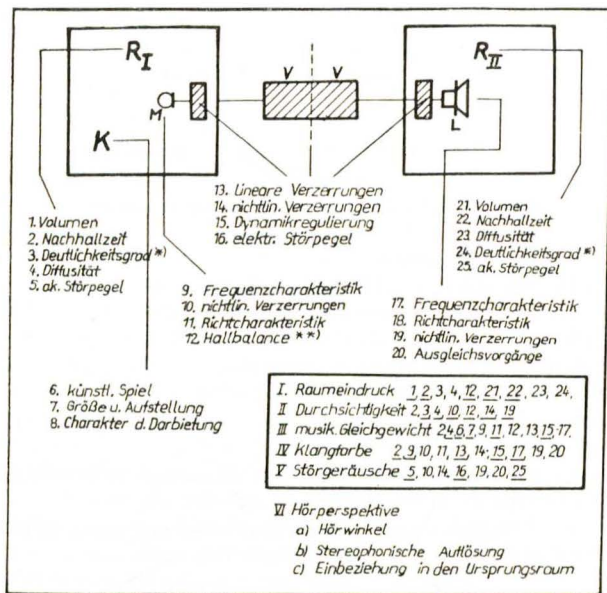 R_I
V V
R_II
M
L
K
13. Lineare Verzerrungen
14. nichtlin. Verzerrungen
15. Dynamikregulierung
16. elektr. Störpegel
1. Volumen
2. Nachhallzeit
3. Deutlichkeitsgrad *)
4. Diffusität
5. ak. Störpegel
21. Volumen
22. Nachhallzeit
23. Diffusität
24. Deutlichkeitsgrad *)
25. ak. Störpegel
9. Frequenzcharakteristik
10. nichtlin. Verzerrungen
11. Richtcharakteristik
12. Hallbalance **)
17. Frequenzcharakteristik
18. Richtcharakteristik
19. nichtlin. Verzerrungen
20. Ausgleichsvorgänge
6. künstl. Spiel
7. Größe u. Aufstellung
8. Charakter d. Darbietung
I. Raumeindruck 1, 2, 3, 4, 12, 21, 22, 23, 24.
II Durchsichtigkeit 2, 3, 4, 10, 12, 14, 19
III musik. Gleichgewicht 2, 4, 6, 7, 9, 11, 12, 13, 15, 17.
IV Klangfarbe 2, 9, 10, 11, 13, 14, 15, 17, 19, 20
V Störgeräusche 5, 10, 14, 16, 19, 20, 25
VI Hörperspektive
a) Hörwinkel
b) Stereophonische Auflösung
c) Einbeziehung in den Ursprungsraum